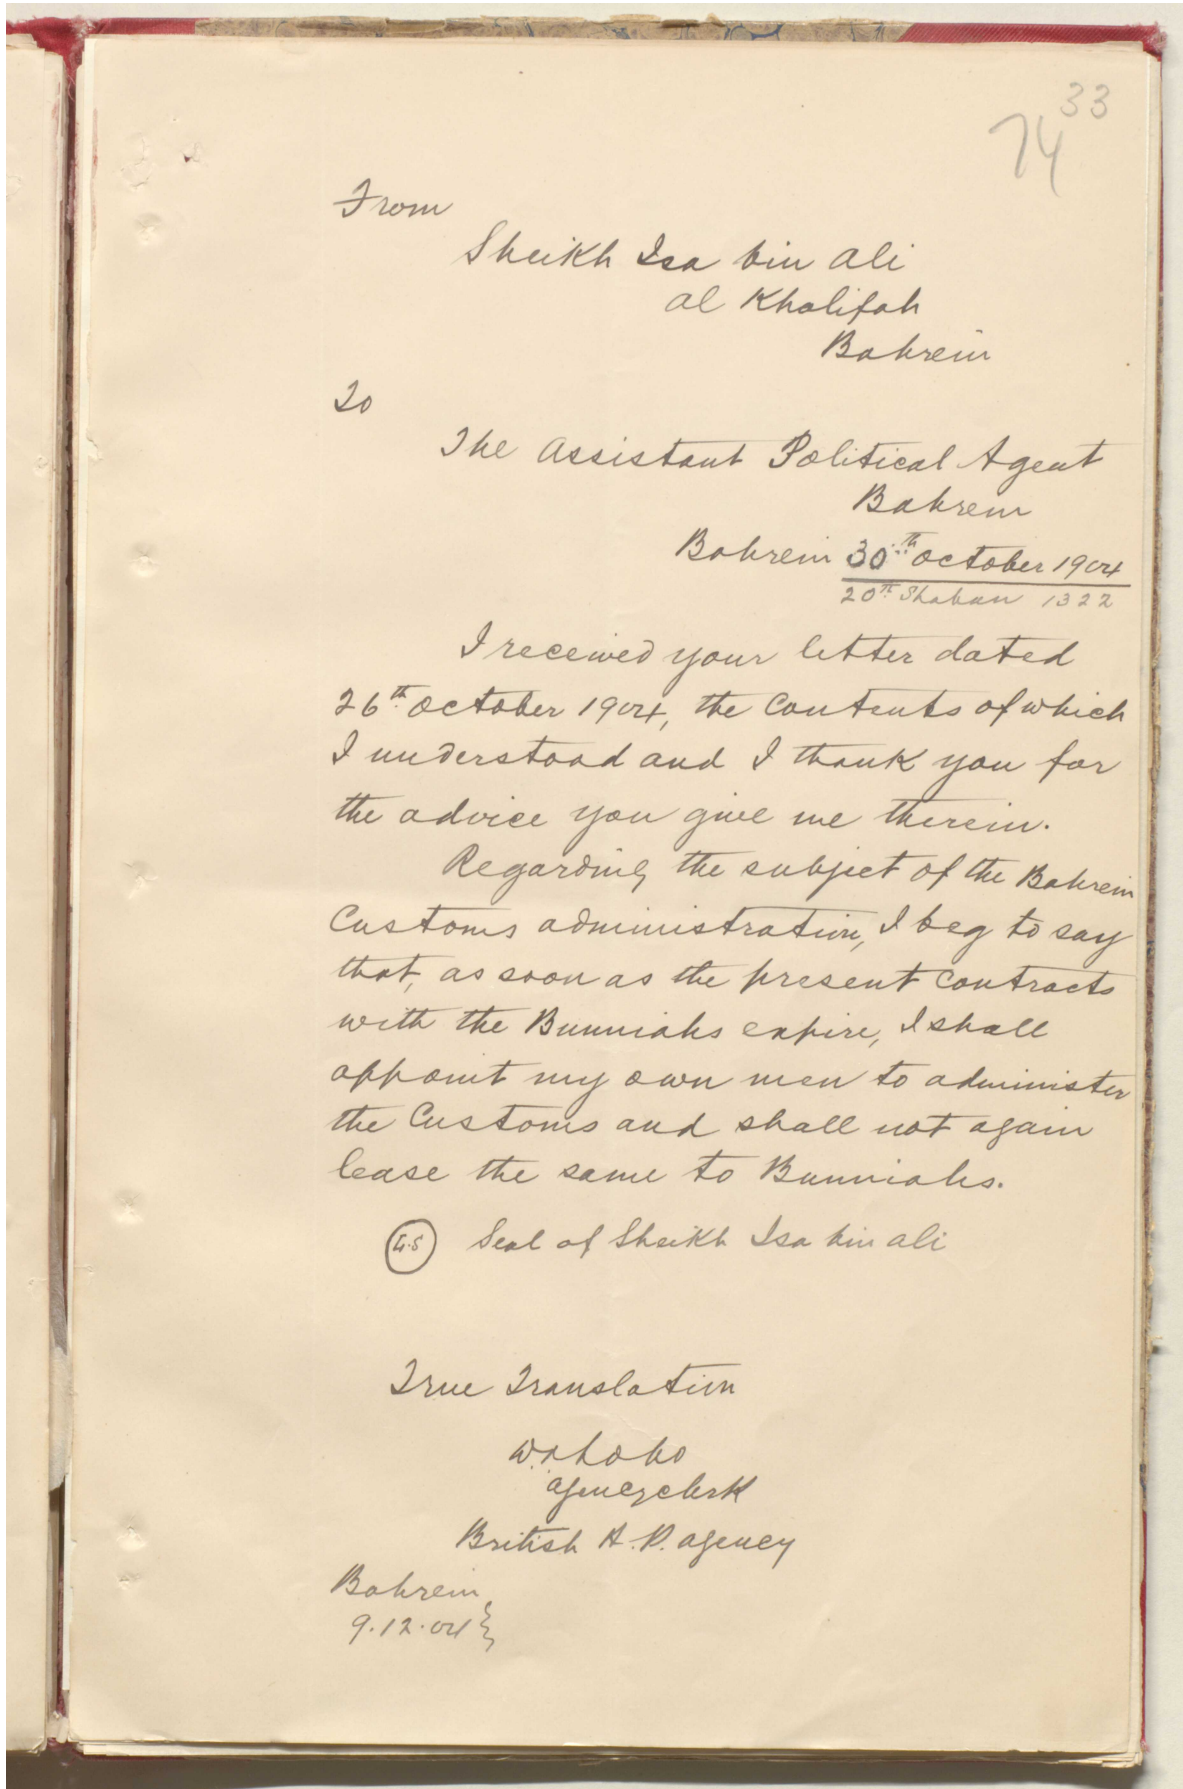 33
74
From
Sheikh Isa bin Ali
al Khalifah
Bahrein
To
The Assistant Political Agent
Bahrein
Bahrein 30th October 1904
20th Shaban 1322
I received your letter dated
26th October 1904, the contents of which
I understood and I thank you for
the advice you give me therein.
Regarding the subject of the Bahrein
Customs administration, I beg to say
that, as soon as the present contracts
with the Bunniahs expire, I shall
appoint my own men to administer
the Customs and shall not again
lease the same to Bunniahs.
L.S Seal of Sheikh Isa bin Ali
True Translation
Agency clerk
British A. P. Agency
Bahrein
9.12.04